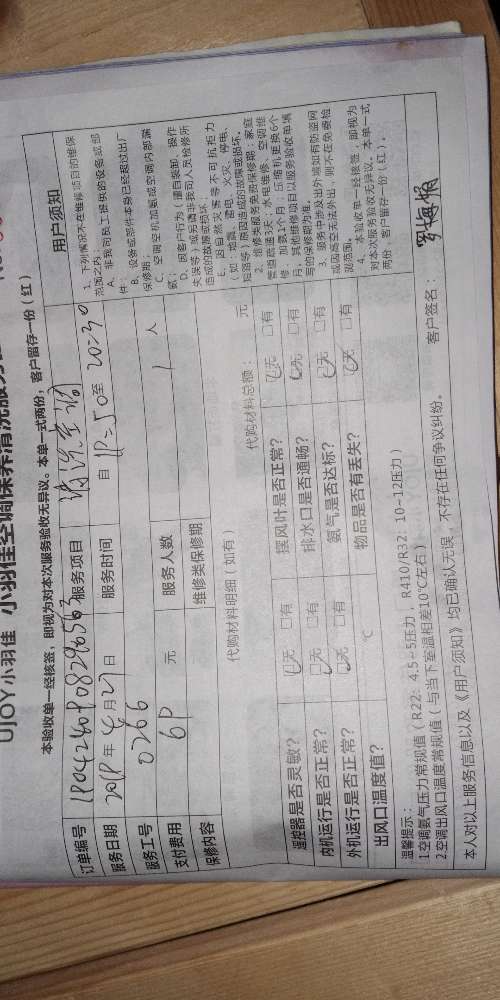 UJOY小羽佳 小羽佳空调保养清洗服务
本验收单一经核签，即视为对本次服务验收无异议。本单一式两份，客户留存一份（红）
订单编号 服务项目 清洗空调
服务日期 2018年4月27日 服务时间 自 18:50 至 20:30
服务工号 0266 服务人数 1 人
支付费用 元 维修类保修期
保修内容
代购材料明细（如有） 代购材料总额： 元
遥控器是否灵敏？ 无 有 摆风叶是否正常？ 无 有
内机运行是否正常？ 无 有 排水口是否通畅？ 无 有
外机运行是否正常？ 无 有 氨气是否达标？ 无 有
出风口温度值？ ℃ 物品是否有丢失？ 无 有
用户须知
1、下列情况不在维修项目的维保
范围之内：
A、非我司员工提供的设备或部
件；
B、设备或部件本身已经超过出厂
保修期；
C、空调空机加氨或空调内部漏
氨；
D、因客户行为（擅自装卸、操作
失误等）或另请非我司人员检修所
造成的故障或损坏；
E、因自然灾害等不可抗拒力
（如：地震、雷电、火灾、停电、
短路等）原因造成的故障或损坏。
2、维修类服务免费保修期：家庭
管道疏通3天；水电维修、空调维
修、加氨1个月；压缩机更换6个
月；其他维修项目以服务验收单填
写的保修期为准。
3、服务中涉及出外墙如有防盗网
或因高空无法外出，则不在免费检
就范围。
4、本验收单一经核签，即视为
对本次服务验收无异议。本单一式
两份，客户留存一份（红）。
温馨提示：
1.空调氨气压力常规值（R22：4.5-5压力，R410/R32：10-12压力）
2.空调出风口温度常规值（与当下室温相差10℃左右）
本人对以上服务信息以及《用户须知》均已确认无误，不存在任何争议纠纷。 客户签名：